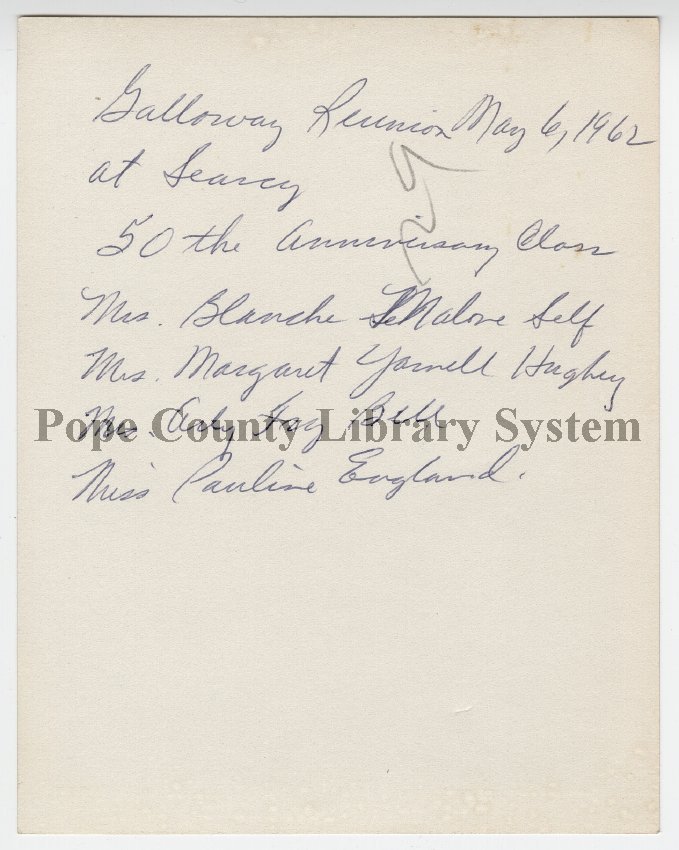 Galloway Reunion May 6, 1962
at Searcy
50 the Anniversary Class
Mrs. Blanche Malone Self
Mrs. Margaret Yarnell Hughey
Mrs. Ady Fay Bell
Pope County Library System
Miss Pauline England.